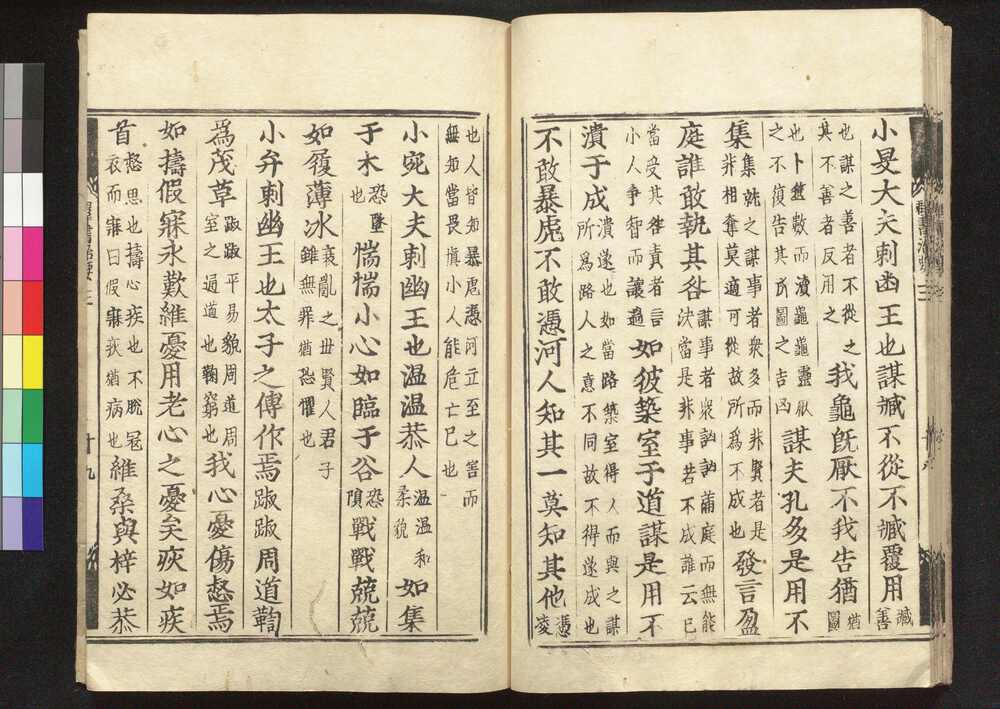 小旻大夫刺幽王也謀臧不從不臧覆用臧善
也謀之善者不從之其不善者反用之我龜既厭不我告猶猶圖
也卜筮數而瀆龜龜靈厭之不復告其所圖之吉凶謀夫孔多是用不
集集就之謀事者衆多而非賢者是非相奪莫適可從故所爲不成也發言盈
庭誰敢執其咎謀事者衆訩訩滿庭而無能決當是非事若不成誰云已
當受其咎責者言小人爭智而讓過如彼築室于道謀是用不
潰于成潰遂也如當路築室得人而與之謀所爲路人之意不同故不得遂成也
不敢暴虎不敢憑河人知其一莫知其他憑凌
也人皆知暴虎憑河立至之害而無知當畏愼小人能危亡已也
小宛大夫刺幽王也温温恭人温温和柔貌如集
于木恐墜也惴惴小心如臨于谷恐隕戰戰兢兢
如履薄冰衰亂之世賢人君子雖無罪猶恐懼也
小弁刺幽王也太子之傅作焉踧踧周道鞫
爲茂草踧踧平易貌周道周室之通道也鞫窮也我心憂傷惄焉
如擣假寐永歎維憂用老心之憂矣疢如疾
首惄思也擣心疾也不脫冠衣而寐曰假寐疢猶病也維桑與梓必恭
十九